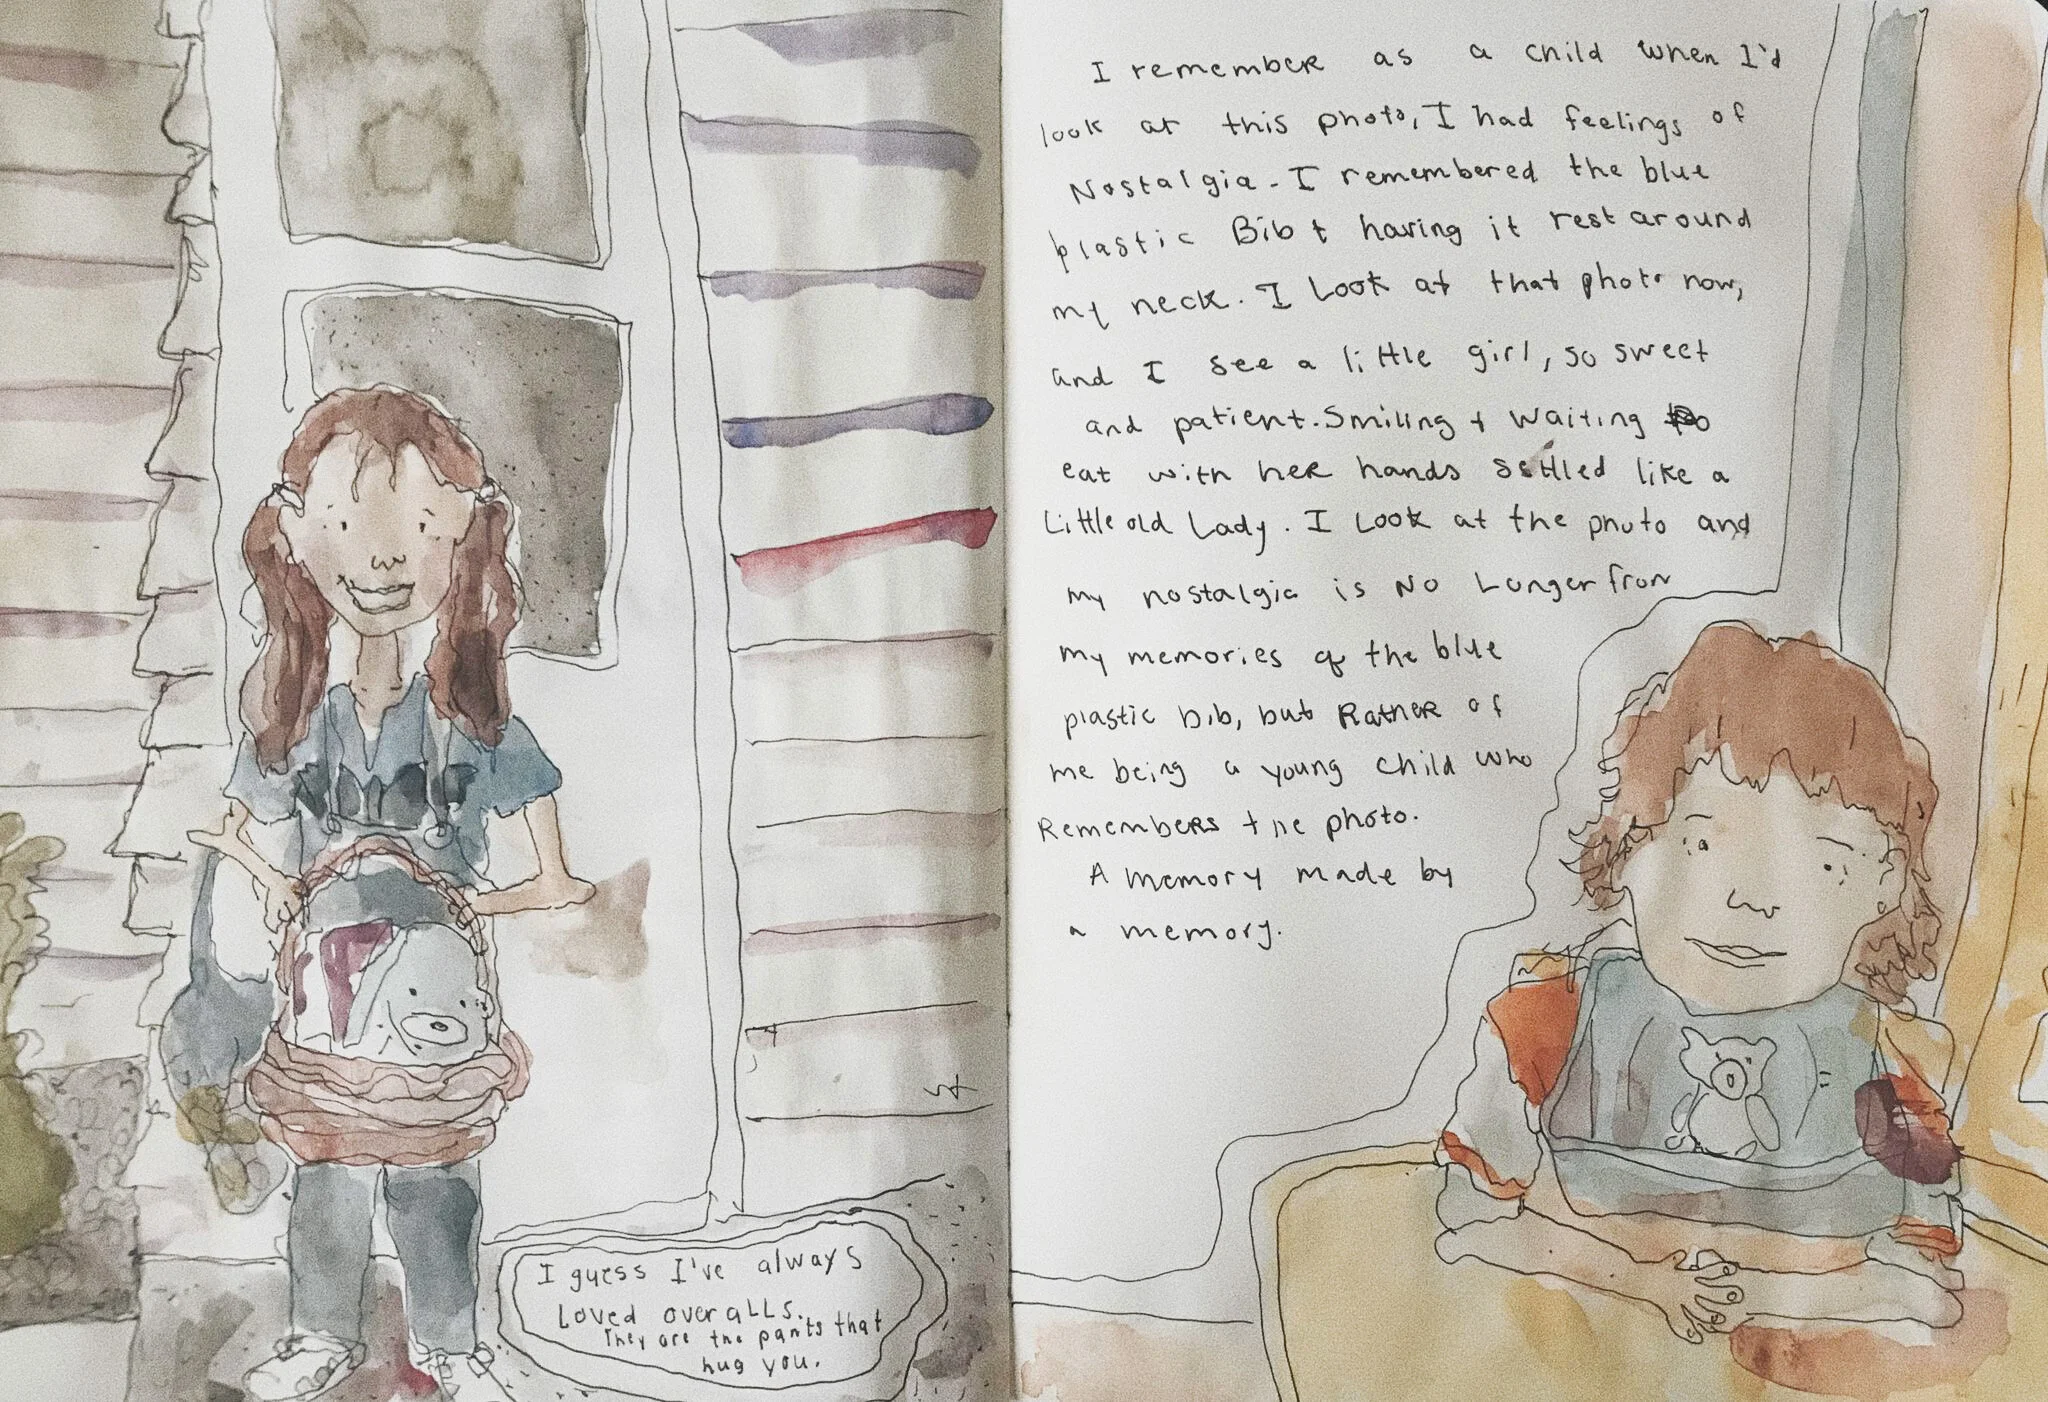 I guess I've always
Loved overalls.
They are the pants that
hug you.
I remember as a child when I'd
look at this photo, I had feelings of
Nostalgia - I remembered the blue
plastic Bib + having it rest around
my neck. I Look at that photo now,
and I see a little girl, so sweet
and patient. Smiling + waiting to
eat with her hands settled like a
Little old Lady. I Look at the photo and
my nostalgia is NO Longer from
my memories of the blue
plastic bib, but Rather of
me being a young child who
Remembers the photo.
A memory made by
a memory.